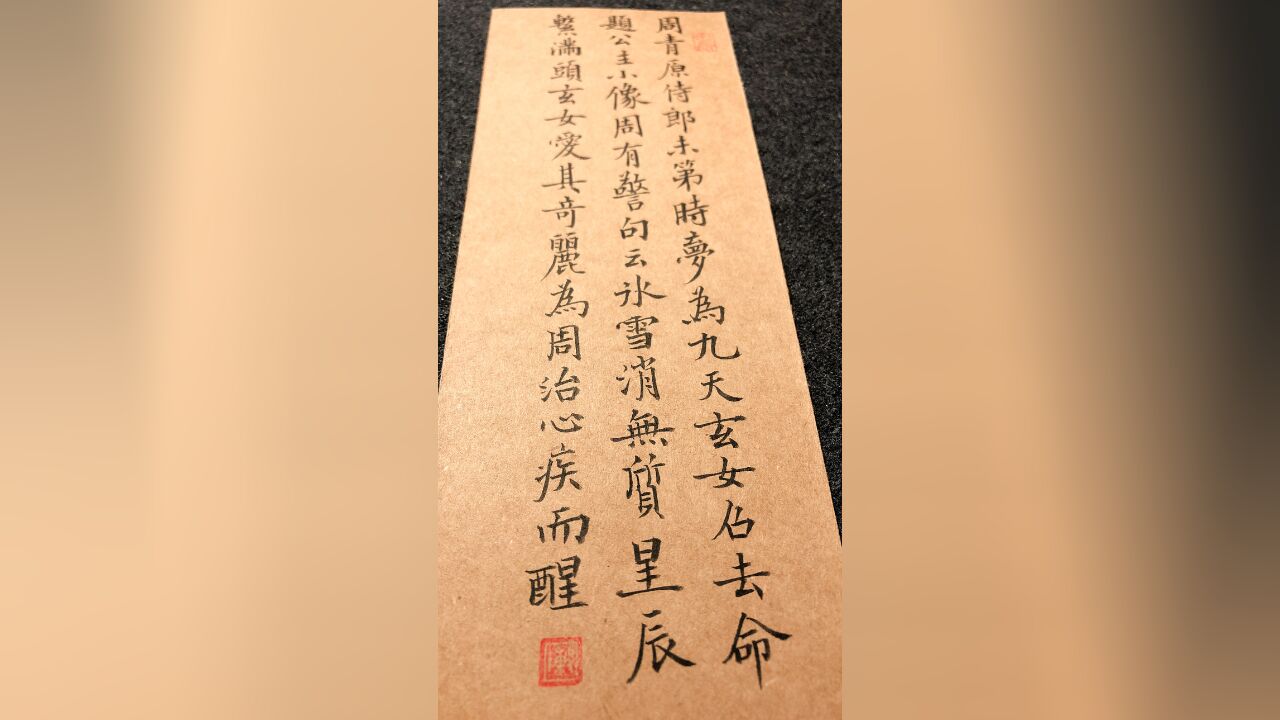 周青原侍郎未第時夢為九天玄女召去命
題公主小像周有警句云冰雪消無質星辰
繫滿頭玄女愛其奇麗為周治心疾而醒